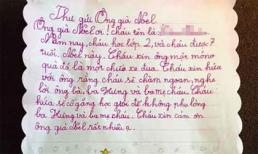 Thư gửi Ông già Noel
Ông già Noel ơi! Cháu tên là
Năm nay, cháu học lớp 2, và cháu được 7
tuổi. Nôel này, cháu xin ông một món
quà đó là một chiếc xe đua. Cháu xin hứa
với ông rằng cháu sẽ chăm ngoan, nghe
lời ông bà, ba Hưng và ba mẹ cháu. Cháu
hứa sẽ cố gắng học giỏi để không phụ lòng
ba Hưng và ba mẹ cháu. Cháu xin cảm ơn
ông già Nôel rất nhiều ạ.